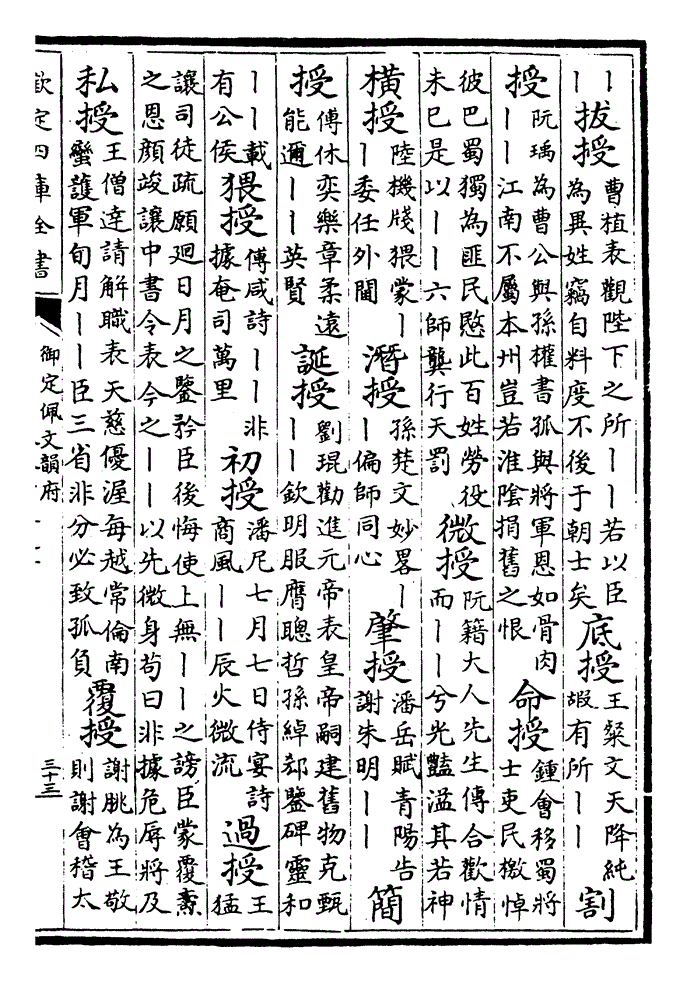 丨丨拔授曹植表觀陛下之所丨丨若以臣為異姓竊自料度不後于朝士矣底授王粲文天降純嘏有所丨丨割
授阮瑀為曹公與孫權書孤與將軍恩如骨肉丨丨江南不屬本州豈若淮陰捐舊之恨命授鍾會移蜀將士吏民檄悼
彼巴蜀獨為匪民愍此百姓勞役未已是以丨丨六師龔行天罰微授阮籍大人先生傳合歡情而丨丨兮光豔溢其若神
橫授陸機牋猥蒙丨丨委任外閫潛授孫楚文妙畧丨丨偏師同心肇授潘岳賦青陽告謝朱明丨丨簡
授傅休奕樂章柔遠能邇丨丨英賢誕授劉琨勸進元帝表皇帝嗣建舊物克甄丨丨欽明服膺聰哲孫綽郄鑒碑靈和
丨丨載有公侯猥授傅咸詩丨丨非據奄司萬里初授潘尼七月七日侍宴詩商風丨丨辰火微流過授王猛
讓司徒疏願廻日月之鑒矜臣後悔使上無丨丨之謗臣蒙覆燾之恩顏竣讓中書令表今之丨丨以先微身苟曰非據危辱將及
私授王僧達請解職表天慈優渥每越常倫南蠻護軍旬月丨丨臣三省非分必致孤負覆授謝朓為王敬則謝會稽太
欽定四庫全書
御定佩文韻府
三十三